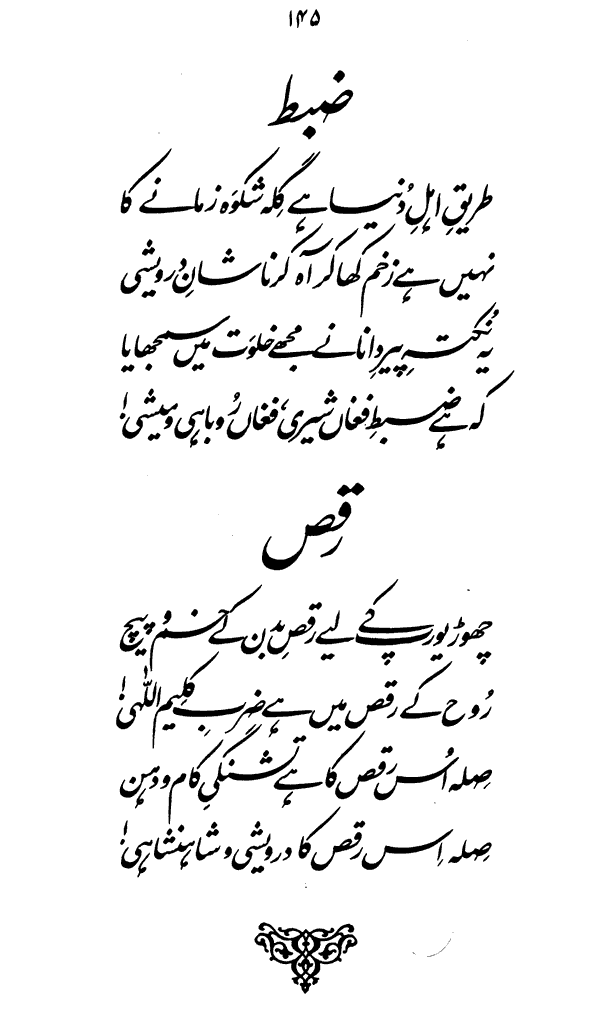 ۱۴۵
ضبط
طریقِ اہلِ دُنیا ہے گِلہ شکوَہ زمانے کا
نہیں ہے زخم کھا کر آہ کرنا شانِ درویشی
یہ نُکتہ پیرِ دانا نے مجھے خلوَت میں سمجھایا
کہ ہے ضبطِ فغاں شیری، فغاں رُوباہی و میشی!
رقص
چھوڑ یورپ کے لیے رقصِ بدن کے خم و پیچ
رُوح کے رقص میں ہے ضربِ کلِیم اللّٰہی!
صِلہ اُس رقص کا ہے تشنگیِ کام و دہن
صِلہ اِس رقص کا درویشی و شاہنشاہی!